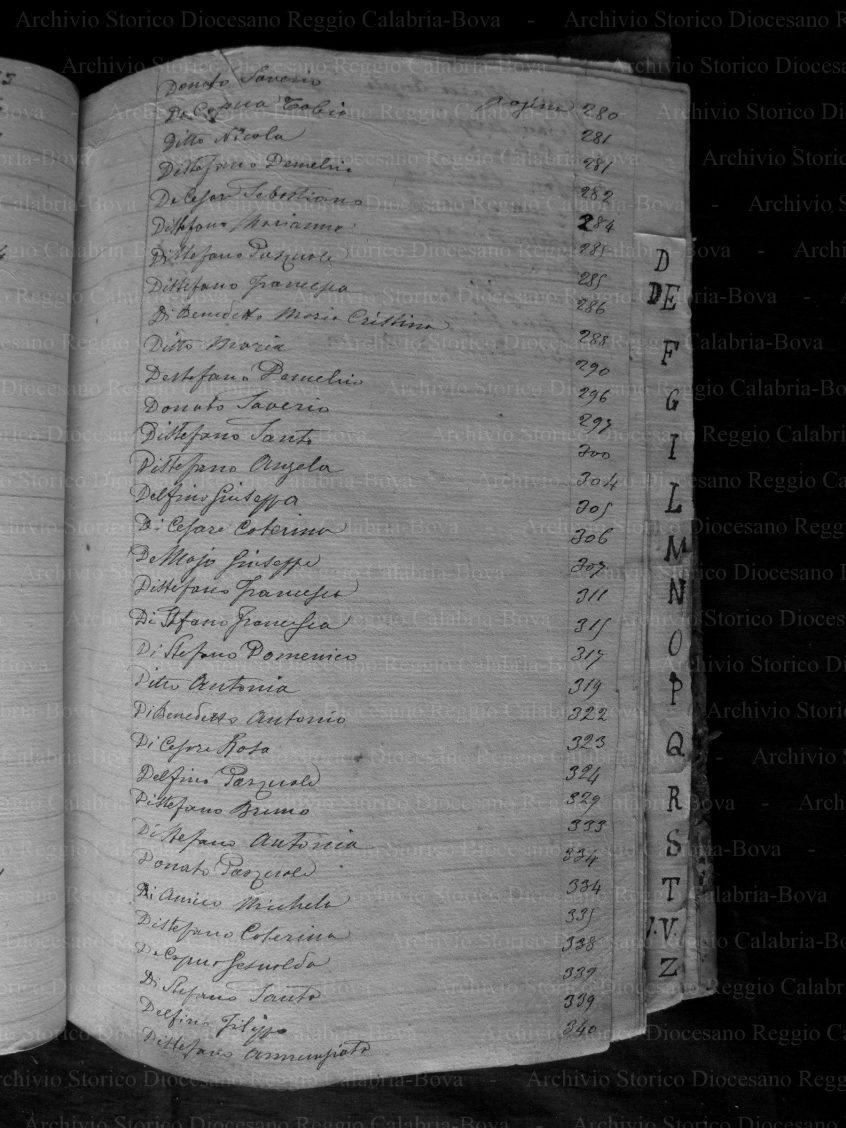 Donato Saverio pagine 280
De Capua Fabio 281
Ditto Nicola 281
Distefano Demetrio 282
De Cesare Sebastiano 284
Distefano Marianna 285
Distefano Pasquale 285
Distefano Francesca 286
Di Benedetto Maria Cristina 288
Ditto Maria 290
Destefano Demetrio 296
Donato Saverio 297
Distefano Santo 300
Distefano Angela 304
Delfino Giuseppa 305
Di Cesare Caterina 306
De Majo Giuseppe 307
Distefano Francesca 311
Di Stefano Francesca 315
Di Stefano Domenico 317
Ditto Antonia 319
Di Benedetto Antonio 322
Di Cesare Rosa 323
Delfino Pasquale 324
Distefano Bruno 329
Distefano Antonia 333
Donato Pasquale 334
Di Amico Michele 334
Distefano Caterina 335
De Capua Gesualda 338
Di Stefano Santo 339
Delfino Filippo 339
Distefano Annunziata 340
D
DE
F
G
I
L
M
N
O
P
Q
R
S
T
V.V.
Z
Archivio Storico Diocesano Reggio Calabria-Bova